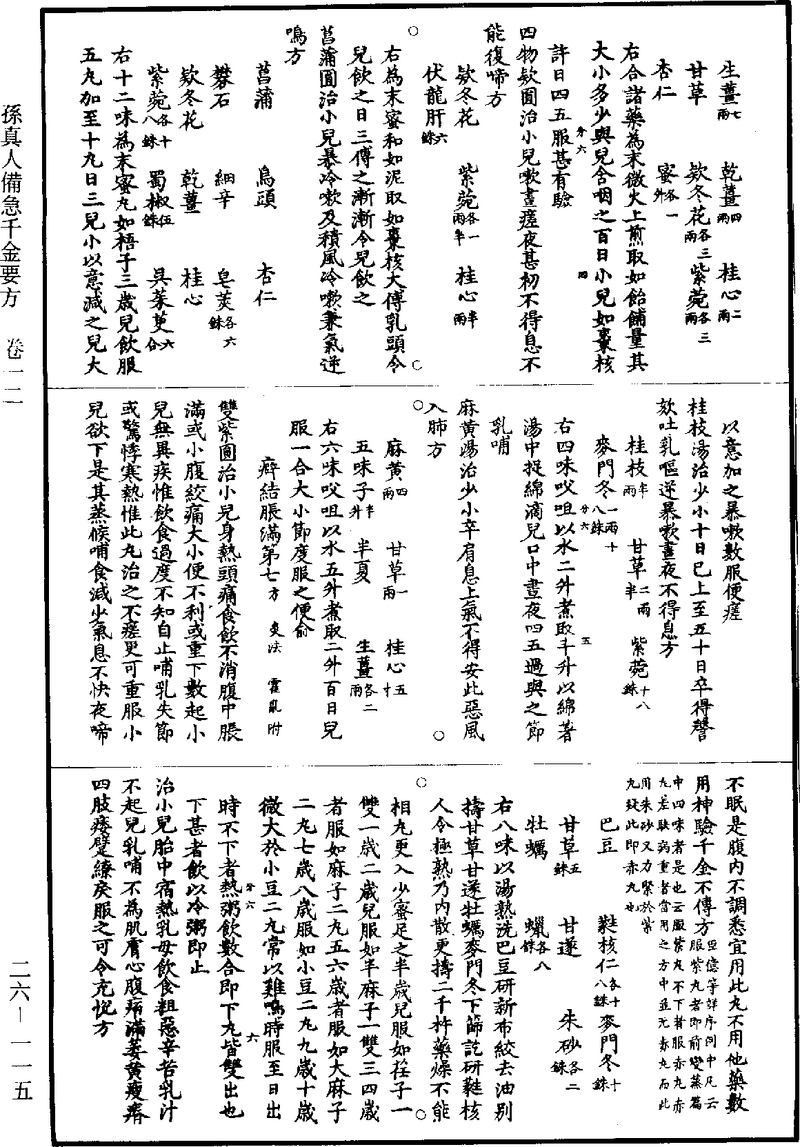 孫真人備急千金要方 卷一二
二六—一一五
生薑七兩 乾薑四兩 桂心二兩
甘草 欵冬花各三兩 紫菀各三兩
杏仁 蜜各一升
右合諸藥為末微火上煎取如飴餔量其
大小多少與兒含咽之百日小兒如棗核
許日四五服甚有驗
四物欵圓治小兒嗽晝瘥夜甚初不得息不
能復啼方
欵冬花 紫菀各一兩半 桂心半兩
伏龍肝六銖
右為末蜜和如泥取如棗核大傅乳頭令
兒飲之日三傅之漸漸令兒飲之
菖蒲圓治小兒暴冷嗽及積風冷嗽兼氣逆
鳴方
菖蒲 烏頭 杏仁
礬石 細辛 皂莢各六銖
欵冬花 乾薑 桂心
紫菀各十八銖 蜀椒伍銖 吳茱萸六合
右十二味為末蜜丸如梧子三歲兒飲服
五丸加至十九日三兒小以意減之兒大
以意加之暴嗽數服便瘥
桂枝湯治少小十日已上至五十日卒得謦
欬吐乳嘔逆暴嗽晝夜不得息方
桂枝半兩 甘草二兩半 紫菀十八銖
麥門冬一兩十八銖
右四味㕮咀以水二升煮取半升以綿著
湯中捉綿滴兒口中晝夜四五過與之節
乳哺
麻黃湯治少小卒肩息上氣不得安此惡風
入肺方
麻黃四兩 甘草一兩 桂心五寸
五味子半升 半夏 生薑各二兩
右六味㕮咀以水五升煮取二升百日兒
服一合大小節度服之便俞
癖結脹滿第七方 灸法 霍亂附
雙紫圓治小兒身熱頭痛食飲不消腹中脹
滿或小腹絞痛大小便不利或重下數起小
兒無異疾惟飲食過度不知自止哺乳失節
或驚悸寒熱惟此丸治之不瘥更可重服小
兒欲下是其蒸候哺食減少氣息不快夜啼
不眠是腹內不調悉宜用此丸不用他藥數
用神驗千金不傳方臣億等詳序例中凡云服紫丸者即前變蒸篇
中四味者是也云服紫丸不下者服赤丸赤
丸瘥駃病重者當用之方中並無赤丸而此
用朱砂又力緊於紫
丸疑此即赤丸也
巴豆 蕤核仁各十八銖 麥門冬十銖
甘草五銖 甘遂 朱砂各二銖
牡蠣 蠟各八銖
右八味以湯熟洗巴豆研新布絞去油別
擣甘草甘遂牡蠣麥門冬下篩訖研蕤核
人令極熟乃內散更擣二千杵藥燥不能
相丸更入少蜜足之半歲兒服如荏子一
雙一歲二歲兒服如半麻子一雙三四歲
者服如麻子二丸五六歲者服如大麻子
二丸七歲八歲服如小豆二丸九歲十歲
微大於小豆二丸常以雞鳴時服至日出
時不下者熱粥飲數合即下丸皆雙出也
下甚者飲以冷粥即止
治小兒胎中宿熱乳母飲食粗惡辛苦乳汁
不起兒乳哺不為肌膚心腹痞滿萎黃瘦瘠
四肢痿躄繚戾服之可令充悅方